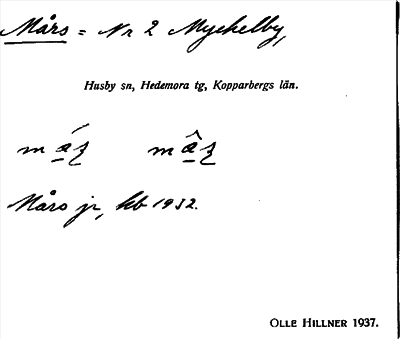 Mårs = Nr 2 Myckelby,
Husby sn, Hedemora tg, Kopparbergs län.
Mårs jr, kb 1932.
OLLE HILLNER 1937.